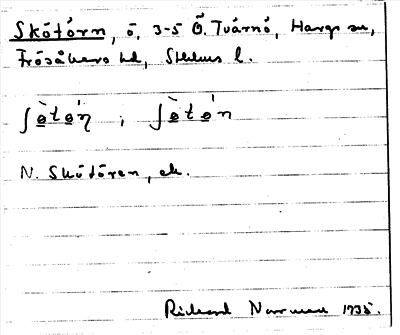 Skötörn, ö, 3-5 Ö. Tvärnö, Hargs sn,
Frösåkers hd, Sthlms l.
ʃø̀tøń ; ʃø̀tøń
N. Skötören, ek.
Rickard Norrman 1935.